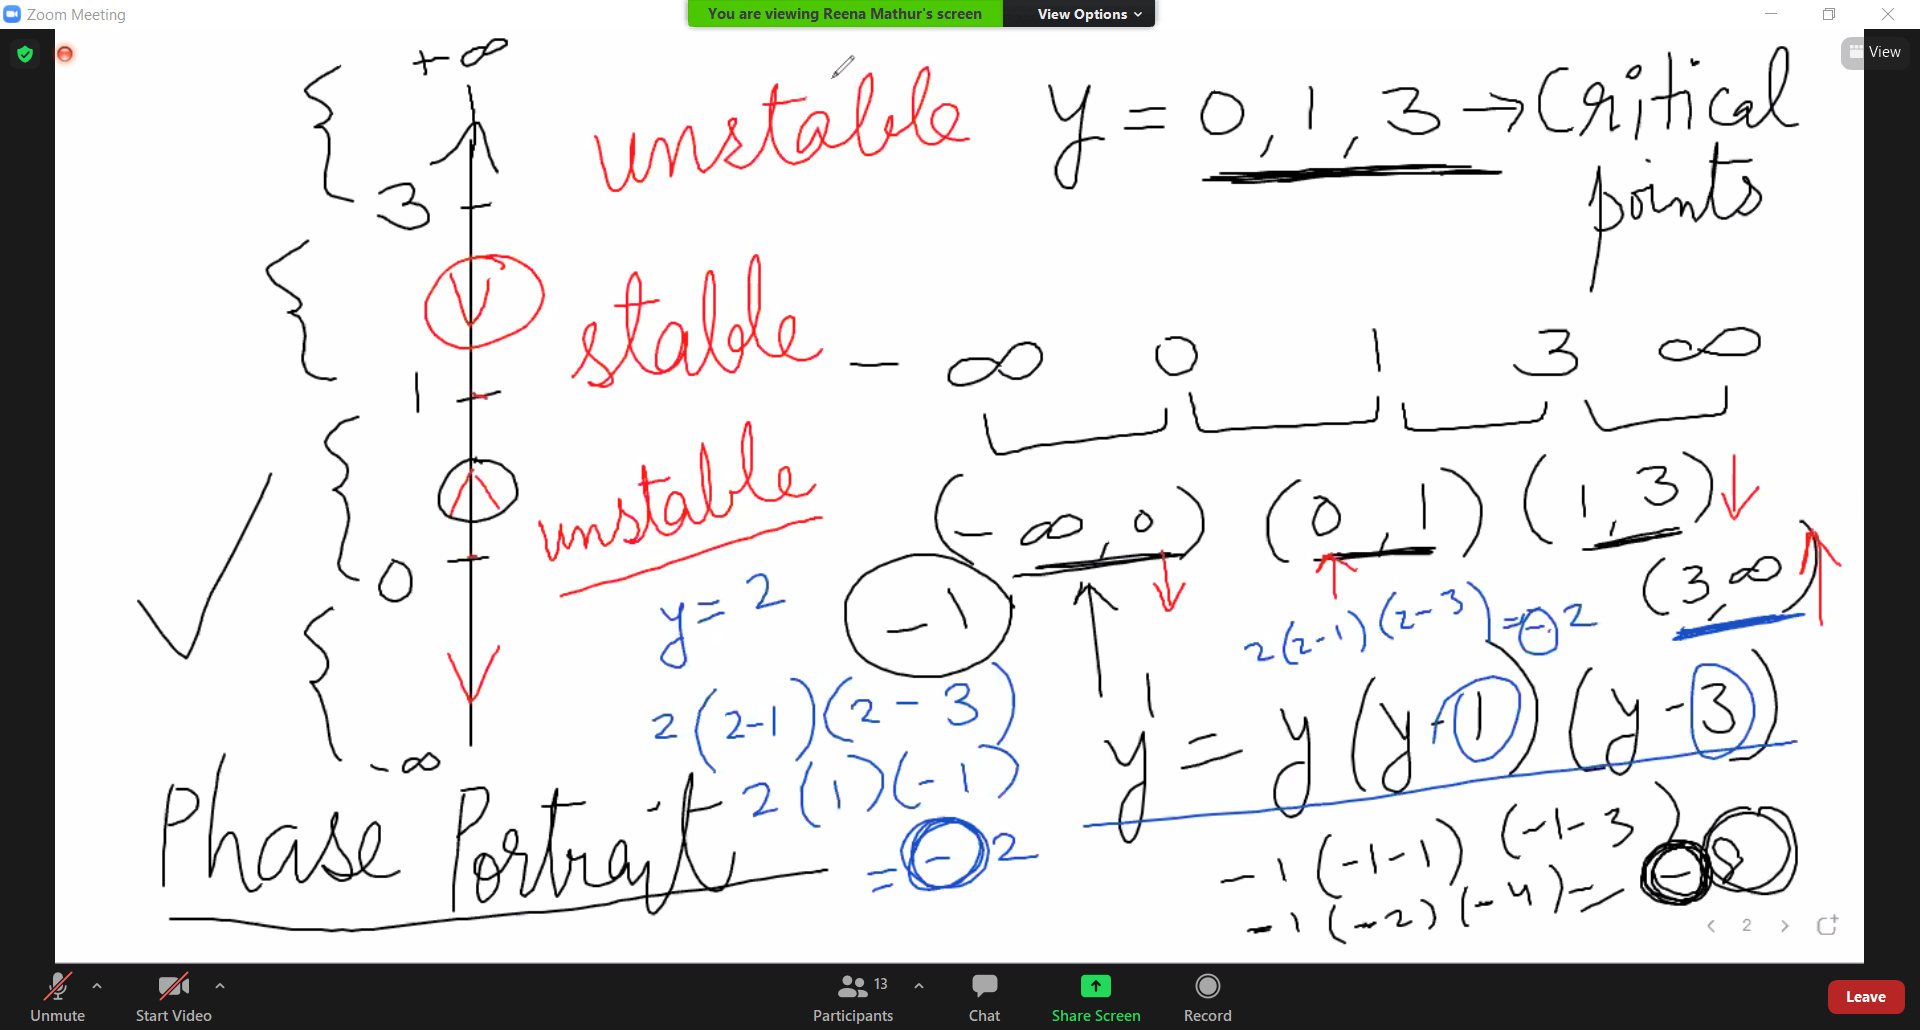 Zoom Meeting
You are viewing Reena Mathur's screen
View Options
View
+∞
3
1
0
-∞
unstable
stable
unstable
y = 0, 1, 3 → Critical
points
-∞ 0 1 3 ∞
(-∞, 0) (0, 1) (1, 3)
(3, ∞)
-1
y = 2
2(2-1)(2-3)
2(1)(-1)
= -2
2(2-1)(2-3) = -2
y' = y(y-1)(y-3)
-1(-1-1)(-1-3)
-1(-2)(-4) = -8
Phase Portrait
2
Unmute
Start Video
13
Participants
Chat
Share Screen
Record
Leave